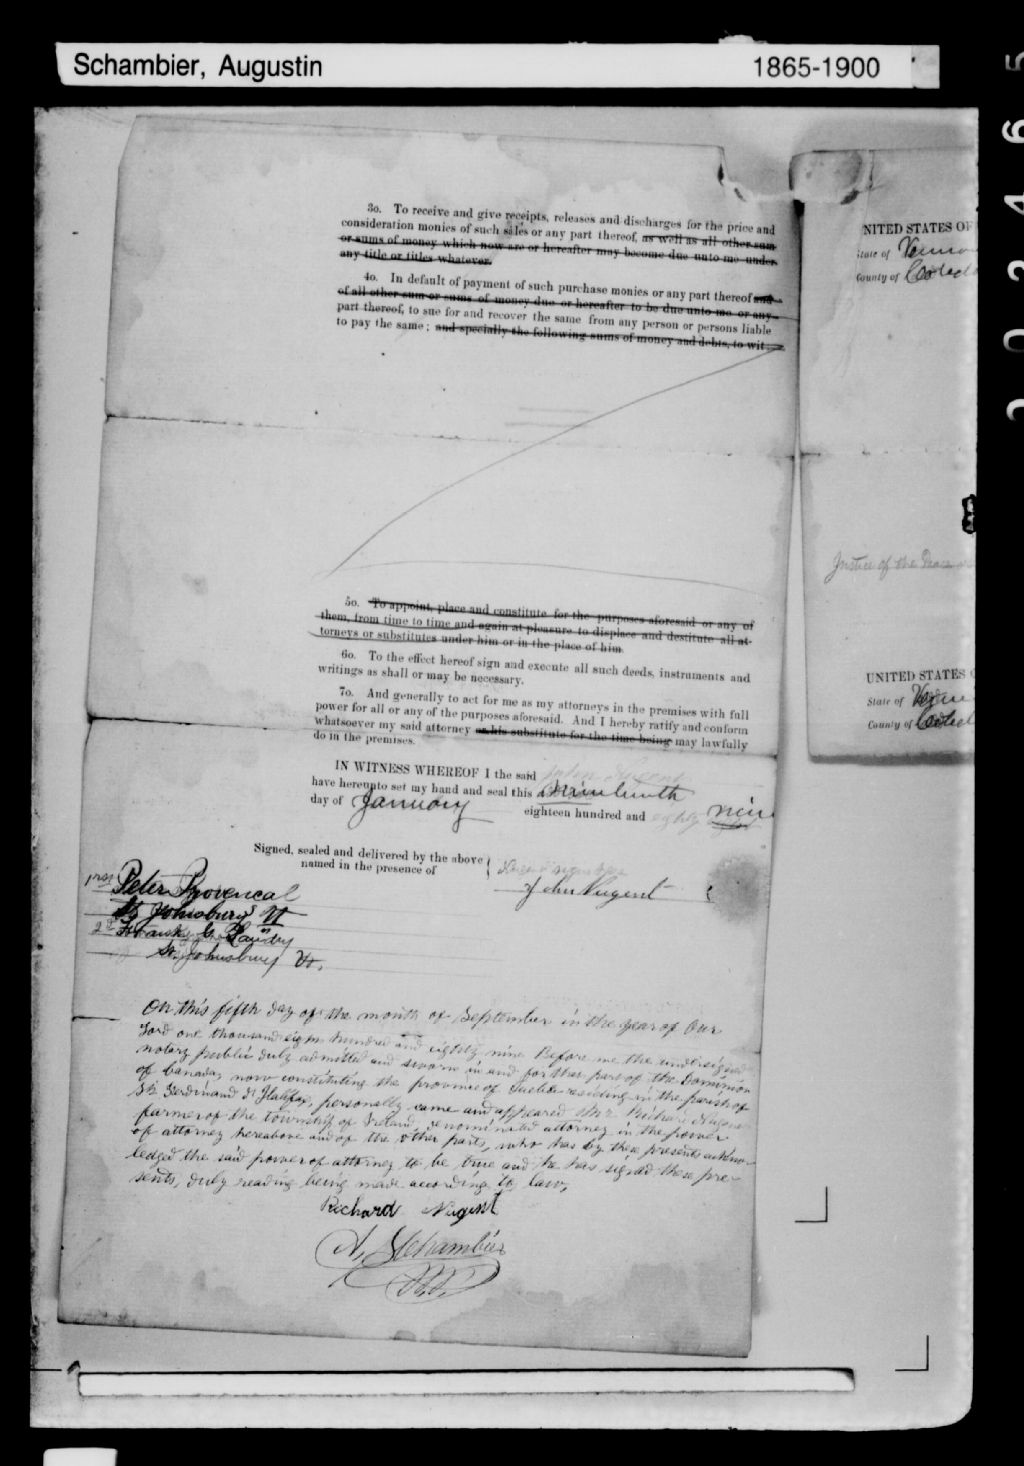 Schambier, Augustin 1865-1900
3o. To receive and give receipts, releases and discharges for the price and
consideration monies of such sales or any part thereof, as well as all other sum
or sums of money which now are or hereafter may become due unto me under
any title or titles whatever.
4o. In default of payment of such purchase monies or any part thereof and
of all other sum or sums of money due or hereafter to be due unto me or any
part thereof, to sue for and recover the same from any person or persons liable
to pay the same; and specially the following sums of money and debts, to wit:
5o. To appoint, place and constitute for the purposes aforesaid or any of
them, from time to time and again at pleasure to displace and destitute all at-
torneys or substitutes under him or in the place of him.
6o. To the effect hereof sign and execute all such deeds, instruments and
writings as shall or may be necessary.
7o. And generally to act for me as my attorneys in the premises with full
power for all or any of the purposes aforesaid. And I hereby ratify and conform
whatsoever my said attorney or his substitute for the time being may lawfully
do in the premises.
IN WITNESS WHEREOF I the said John Nugent
have hereunto set my hand and seal this nineteenth
day of January eighteen hundred and eighty nine
Signed, sealed and delivered by the above
named in the presence of
John Nugent
1rst Peter Provencal
St Johnsbury Vt
2d Frank G. Landry
St. Johnsbury Vt.
On this fifth day of the month of September in the year of Our
Lord one thousand eight hundred and eighty nine Before me the undersigned
notary public duly admitted and sworn in and for that part of the Dominion
of Canada, now constituting the province of Quebec residing in the parish of
St Ferdinand d'Halifax, personally came and appeared Mr Richard Nugent
farmer of the township of Ireland, nominated attorney in the power
of attorney hereabove and of the other parts, who has by these presents acknow-
ledged the said power of attorney to be true and he has signed these pre-
sents, duly reading being made according to law,
Richard Nugent
A, Schambier
N.P.
NITED STATES OF
State of Vermo
County of Caled
Justice of the Peace
UNITED STATES
State of Verm
County of Caled
2 0 3 4 6 5